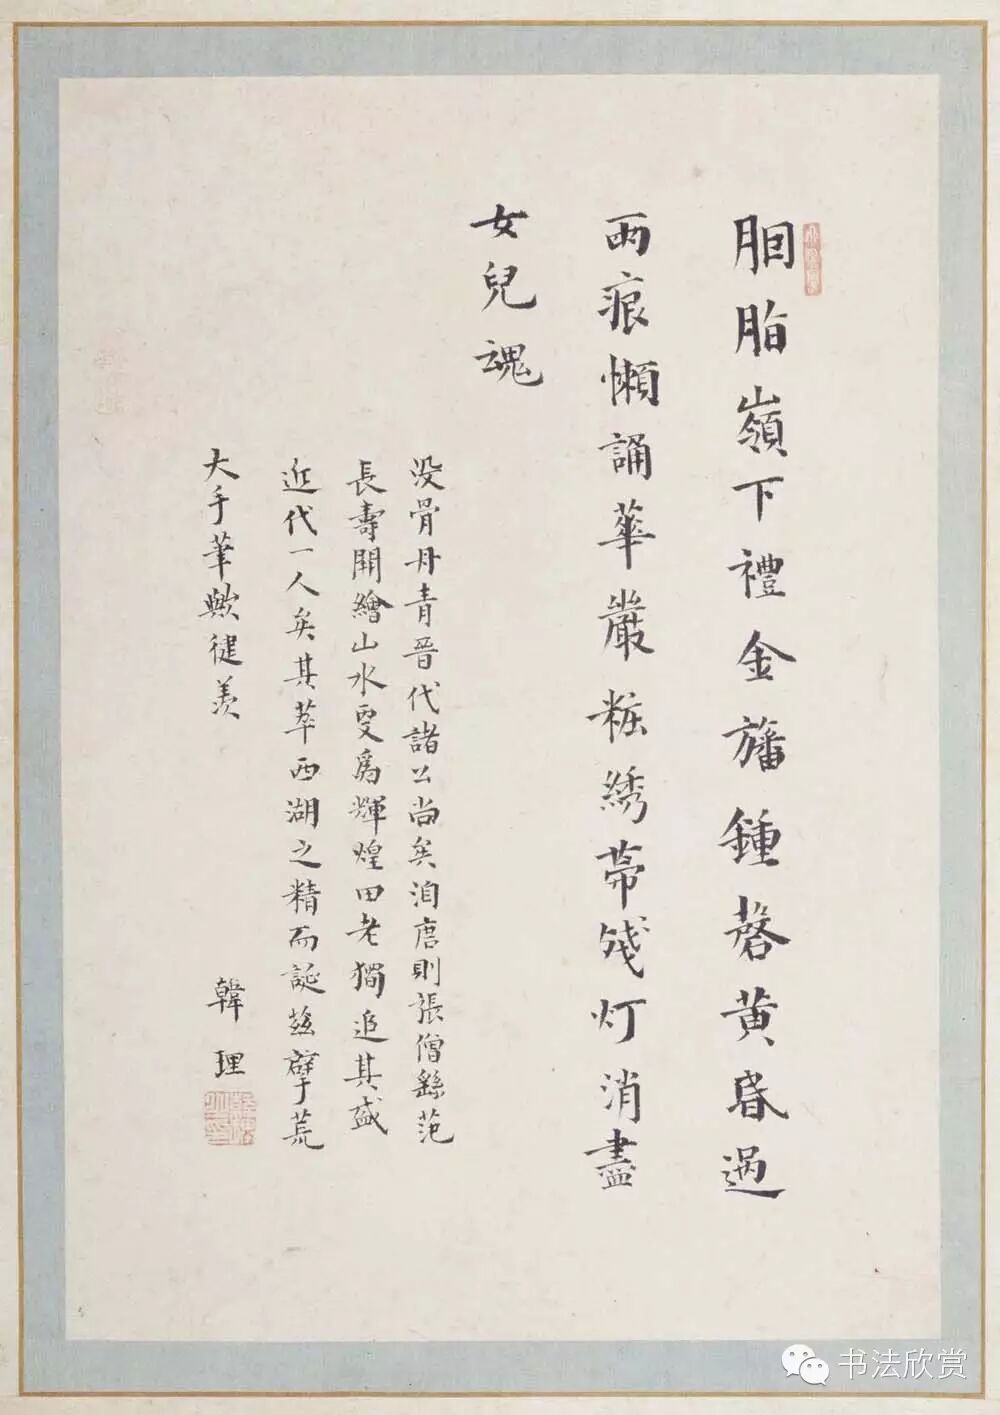 胭脂嶺下禮金旛鍾磬黄昏過
兩痕懶誦華嚴粧綉帯残灯消盡
女兒魂
没骨丹青晉代諸公尚矣洎唐則張僧繇范
長壽開繪山水更爲輝煌田老獨追其盛
近代一人矣其萃西湖之精而誕兹擘荒
大手筆歟健羡
韓理
书法欣赏